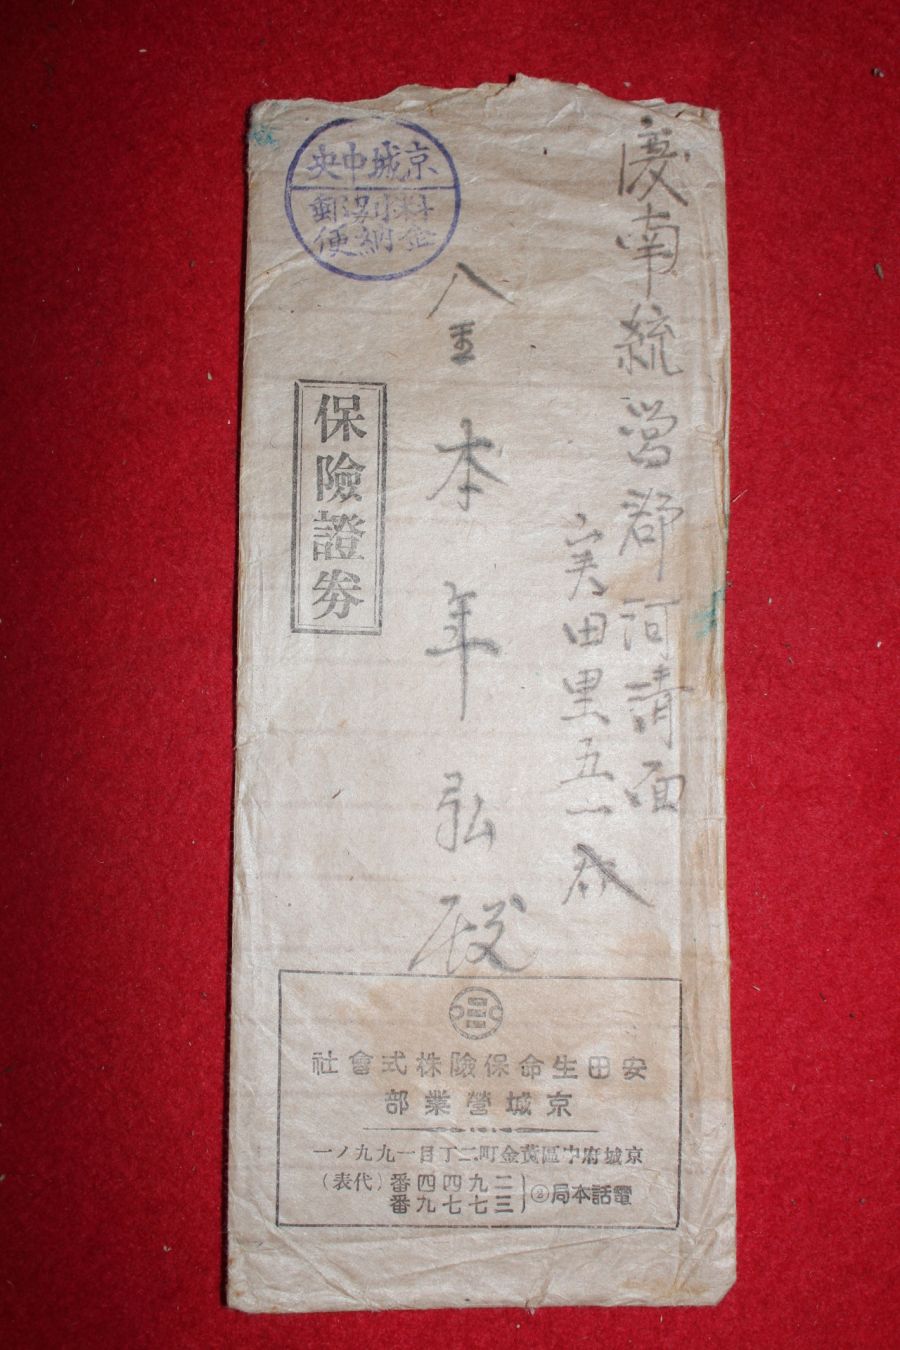 慶南統營郡河清面
実田里五一八
金本年弘殿
京城中央
料金別納郵便
保險證券
安田生命保險株式會社
京城營業部
京城府中區黃金町二丁目一九九ノ一
電話本局② 二九四四番(代表)
三七七九番